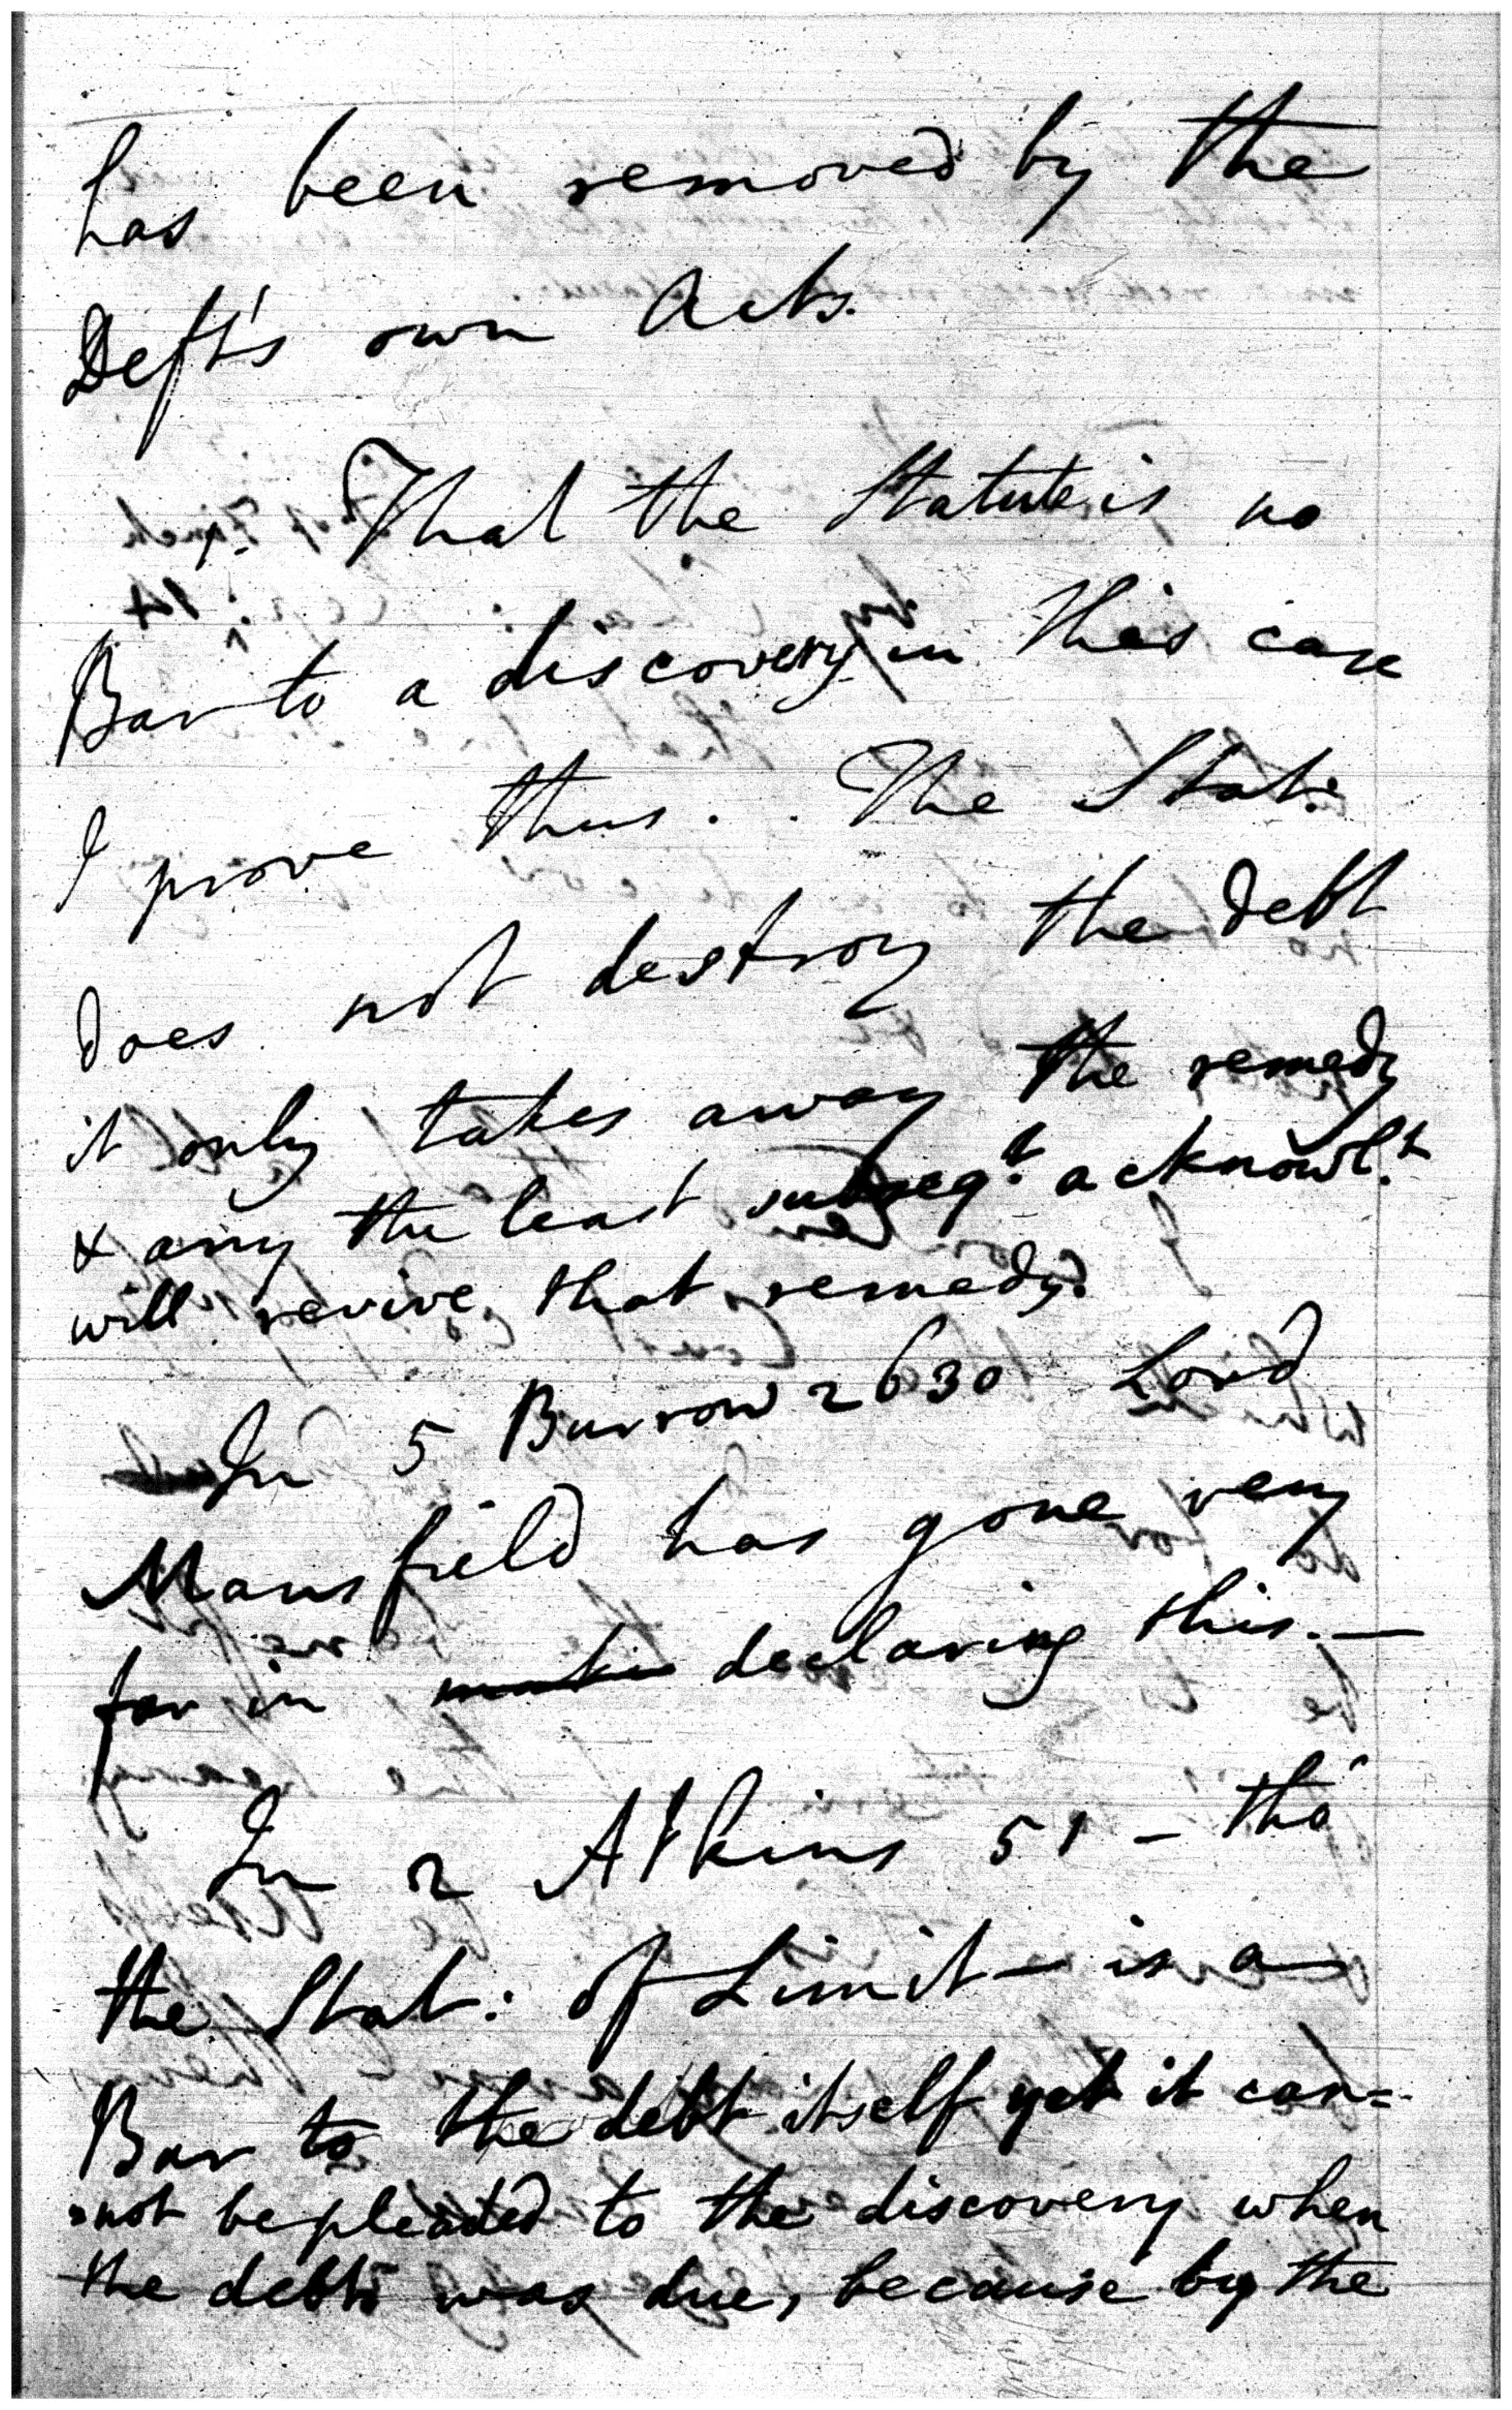 has been removed by the
Deft's own Acts.
1. That the Statute is no
Bar to a discovery in this case
I prove thus. . The Stat:
does not destroy the debt
it only takes away the remedy
& any the least subseq.t acknowl.t
will revive that remedy.
In 5 Burrow 2630 Lord
Mansfield has gone very
far in declaring this. —
In 2 Atkins 51 - tho'
the Stat: of Limit— is a
Bar to the debt itself yet it can=
=not be pleaded to the discovery when
the debt was due, because by the